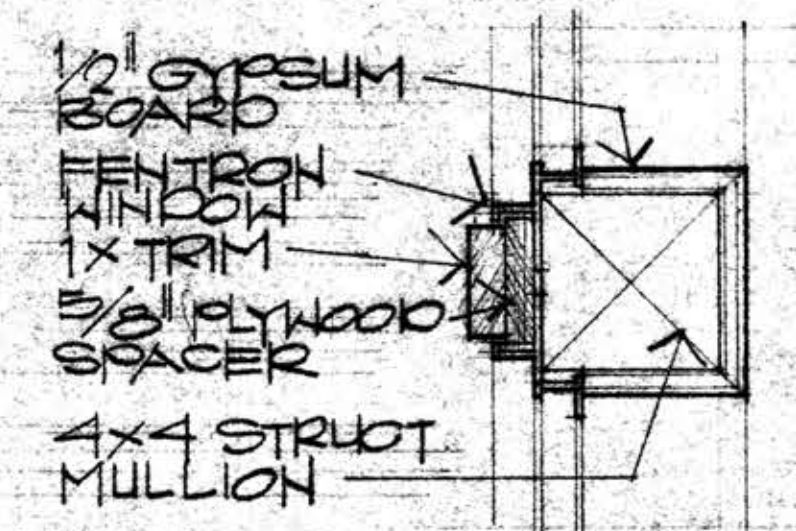 1/2" GYPSUM
BOARD
FENTRON
WINDOW
1x TRIM
5/8" PLYWOOD
SPACER
4x4 STRUCT
MULLION